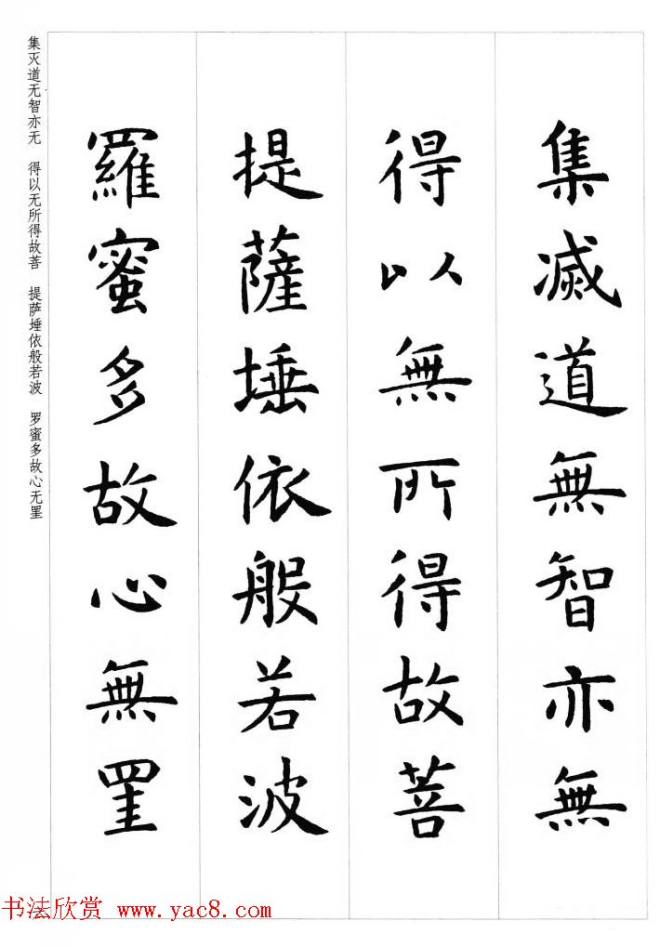 集滅道無智亦無
得以無所得故菩
提薩埵依般若波
羅蜜多故心無罣
集灭道无智亦无　得以无所得故菩　提萨埵依般若波　罗蜜多故心无罣
书法欣赏 www.yac8.com